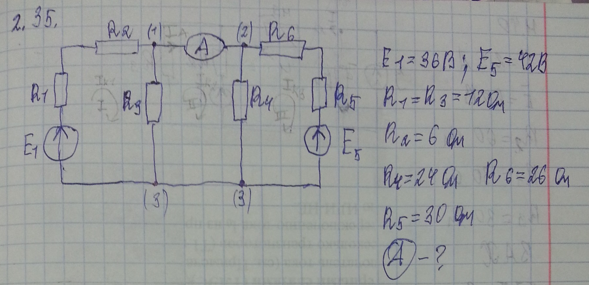 2.35.
R2 (1) A (2) R6
R1 R3 R4 R5
E1 E5
(3) (3)
E1=36В; E5=42В
R1=R3=12Ом
R2=6 Ом
R4=24Ом R6=26 Ом
R5=30 Ом
A - ?